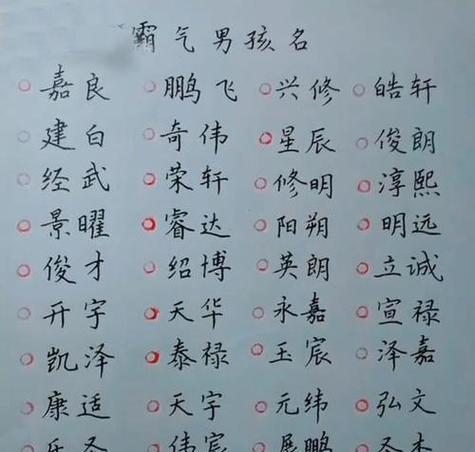 霸气男孩名
嘉良 鹏飞 兴修 皓轩
建白 奇伟 星辰 俊朗
经武 荣轩 修明 淳熙
景曜 睿达 阳朔 明远
俊才 绍博 英朗 立诚
开宇 天华 永嘉 宣禄
凯泽 泰禄 玉宸 泽嘉
康适 天宇 元纬 弘文
伟宸 展鹏